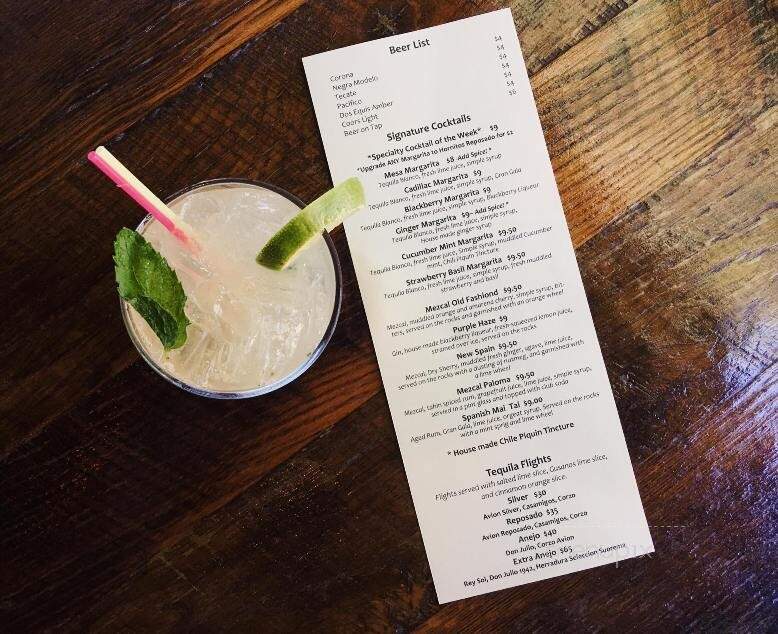 Beer List
Corona $4
Negra Modelo $4
Tecate $4
Pacifico $4
Dos Equis Amber $4
Coors Light $4
Beer on Tap $6
Signature Cocktails
*Specialty Cocktail of the Week* $9
*Upgrade ANY Margarita to Hornitos Reposado for $2
Mesa Margarita $8 Add Spice! *
Tequila Blanco, fresh lime juice, simple syrup
Cadillac Margarita $9
Tequila Blanco, fresh lime juice, simple syrup, Gran Gala
Blackberry Margarita $9
Tequila Blanco, fresh lime juice, simple syrup, Blackberry Liqueur
Ginger Margarita $9- Add Spice! *
Tequila Blanco, fresh lime juice, simple syrup,
House made ginger syrup
Cucumber Mint Margarita $9.50
Tequila Blanco, fresh lime juice, Simple syrup, muddled Cucumber
mint, Chili Piquin Tincture
Strawberry Basil Margarita $9.50
Tequila Blanco, fresh lime juice, simple syrup, fresh muddled
strawberry and basil
Mezcal Old Fashiond $9.50
Mezcal, muddled orange and amarena cherry, simple syrup, bit-
ters, served on the rocks and garnished with an orange wheel
Purple Haze $9
Gin, house made blackberry liqueur, fresh squeezed lemon juice,
strained over ice, served on the rocks
New Spain $9.50
Mezcal, Dry Sherry, muddled fresh ginger, agave, lime juice,
served on the rocks with a dusting of nutmeg, and garnished with
a lime wheel
Mezcal Paloma $9.50
Mezcal, tahin spiced rum, grapefruit juice, lime juice, simple syrup,
served in a pint glass and topped with club soda
Spanish Mai Tai $9.00
Aged Rum, Gran Gala, lime juice, orgeat syrup, Served on the rocks
with a mint sprig and lime wheel
* House made Chile Piquin Tincture
Tequila Flights
Flights served with salted lime slice, Gusanos lime slice,
and cinnamon orange slice.
Silver $30
Avion Silver, Casamigos, Corzo
Reposado $35
Avion Reposado, Casamigos, Corzo
Anejo $40
Don Julio, Corzo Avion
Extra Anejo $65
Rey Sol, Don Julio 1942, Herradura Seleccion Suprema